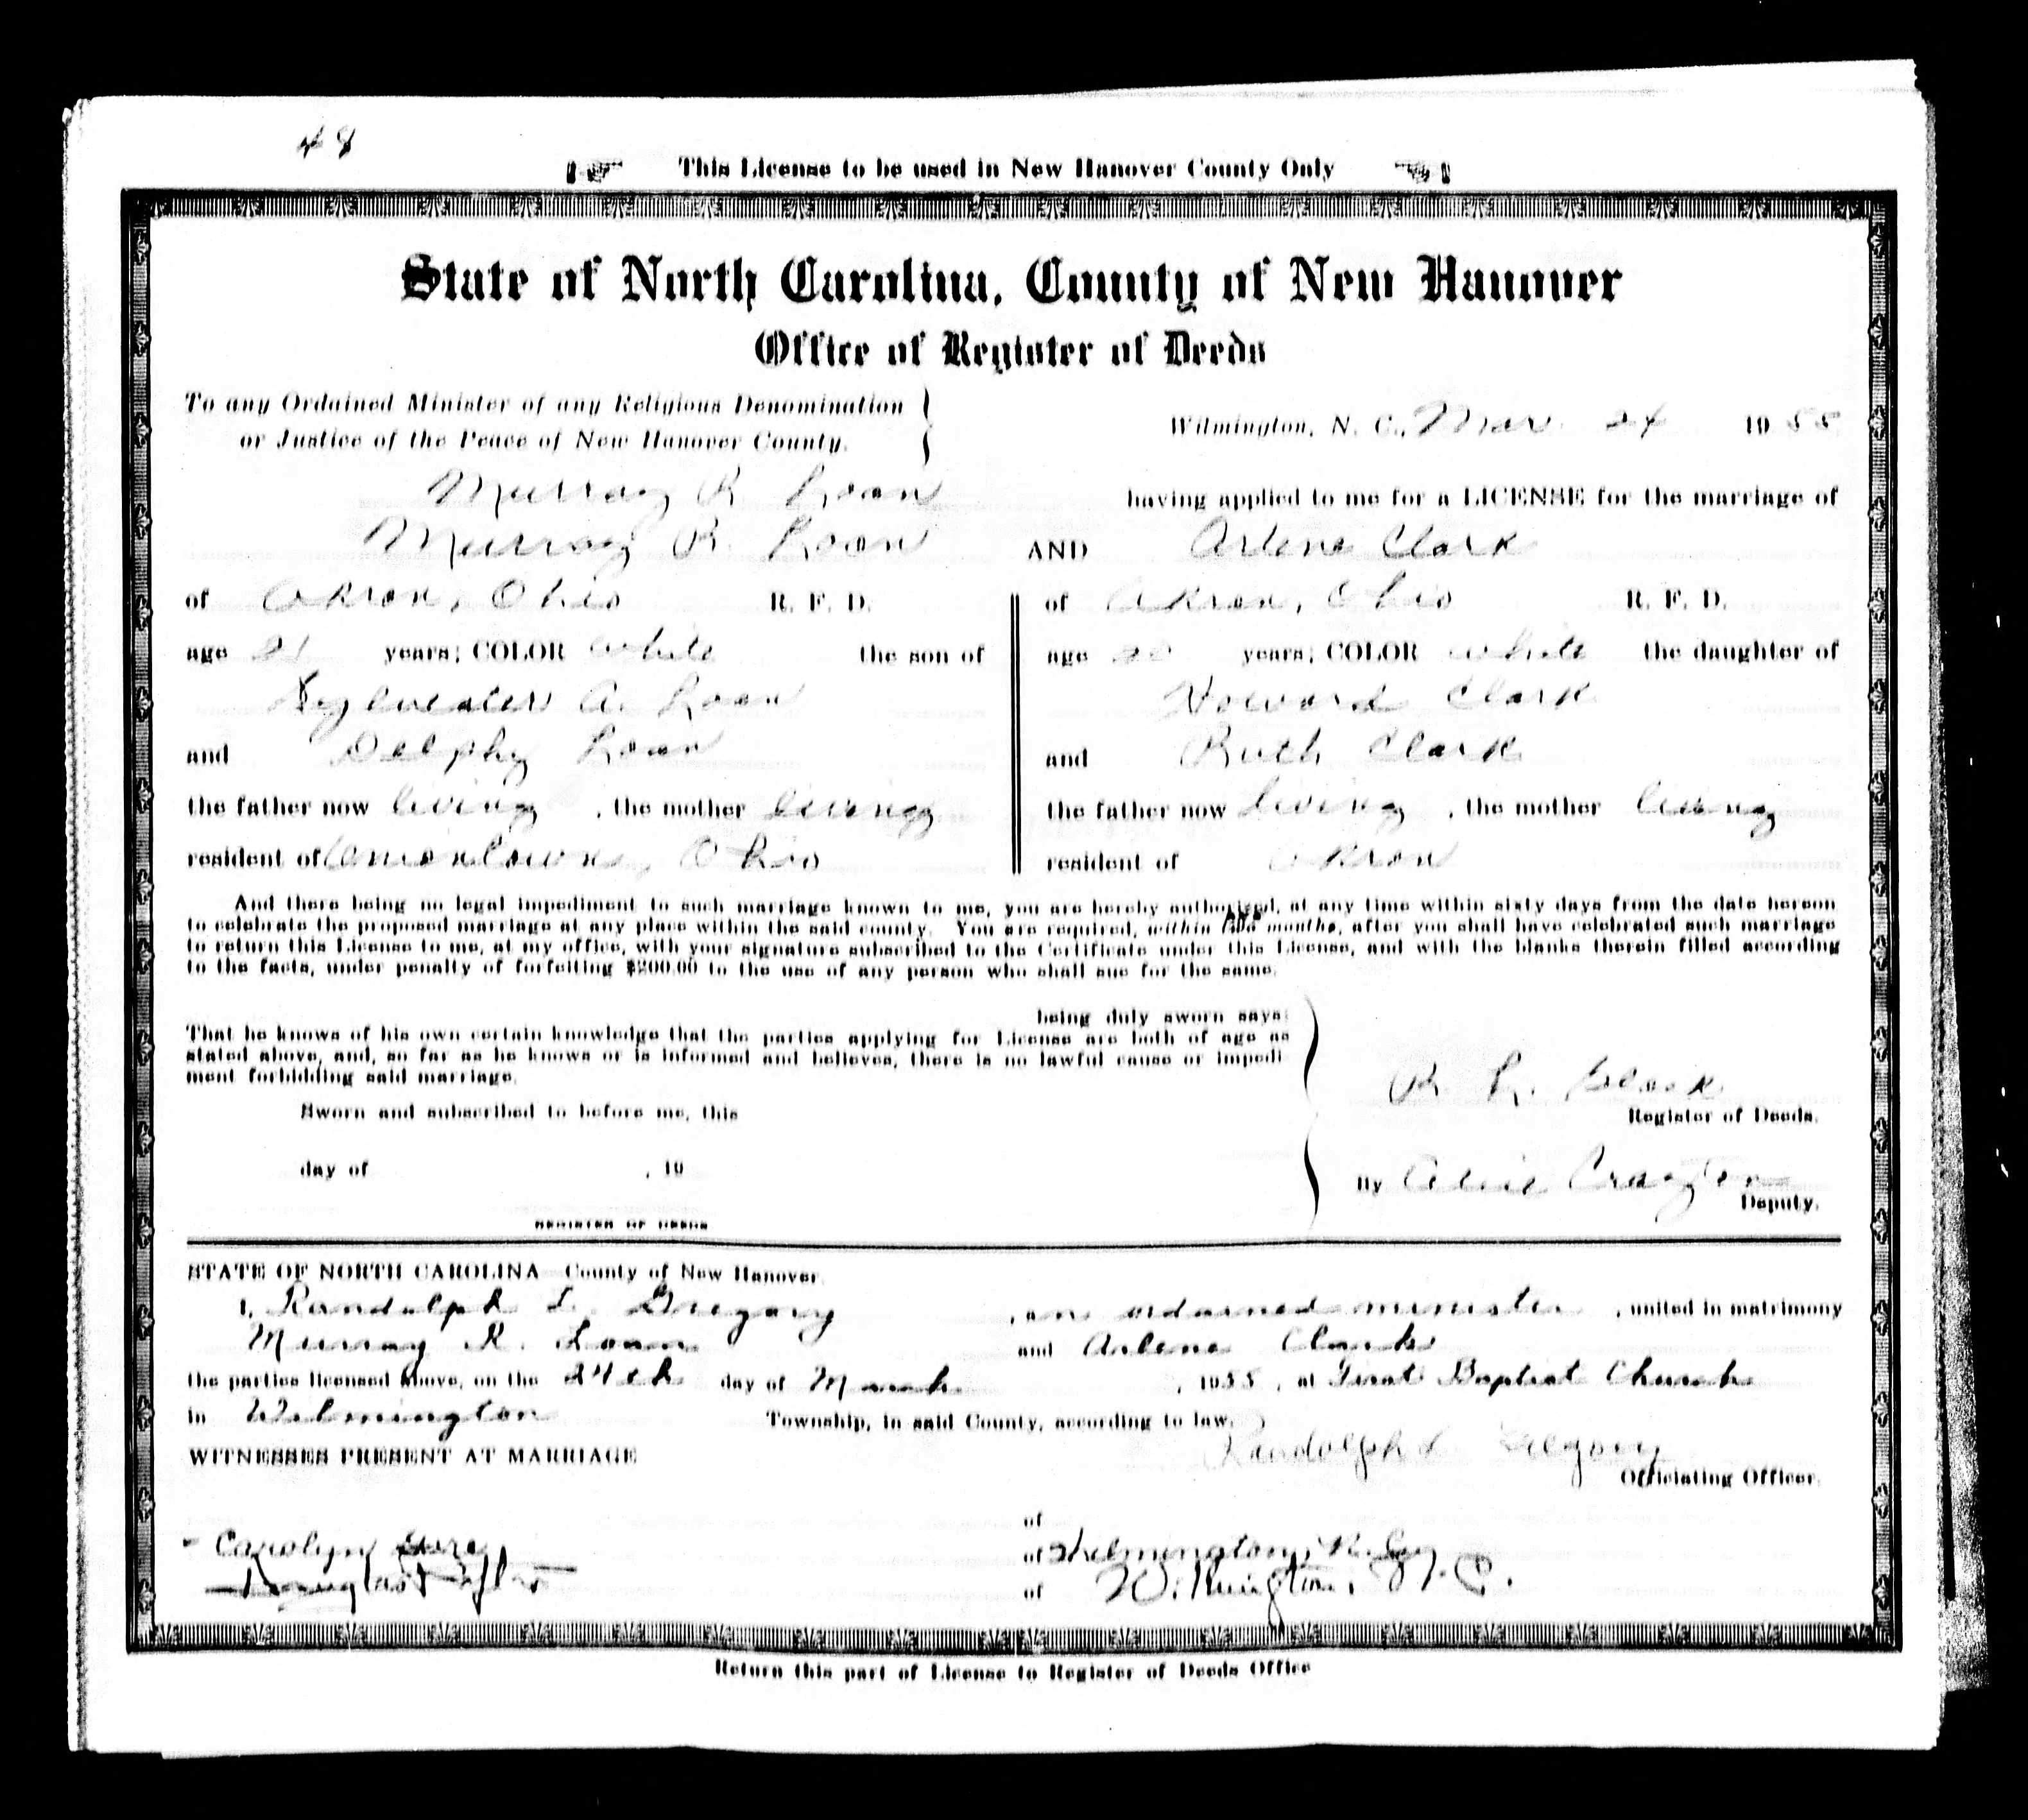 48
This License to be used in New Hanover County Only
State of North Carolina, County of New Hanover
Office of Register of Deeds
To any Ordained Minister of any Religious Denomination
or Justice of the Peace of New Hanover County.
Wilmington, N. C., Mar. 24 1955
Murray R. Loan having applied to me for a LICENSE for the marriage of
Murray R. Loan AND Arlene Clark
of Akron, Ohio R. F. D. of Akron, Ohio R. F. D.
age 21 years; COLOR white the son of age 20 years; COLOR white the daughter of
Sylvester A. Loan Howard Clark
and Delphy Loan and Ruth Clark
the father now living, the mother living the father now living, the mother living
resident of Uniontown, Ohio resident of Akron
And there being no legal impediment to such marriage known to me, you are hereby authorized, at any time within sixty days from the date hereon
to celebrate the proposed marriage at any place within the said county. You are required, within two months, after you shall have celebrated such marriage
to return this License to me, at my office, with your signature subscribed to the Certificate under this License, and with the blanks therein filled according
to the facts, under penalty of forfeiting $200.00 to the use of any person who shall sue for the same.
being duly sworn says:
That he knows of his own certain knowledge that the parties applying for License are both of age as
stated above, and, so far as he knows or is informed and believes, there is no lawful cause or impedi-
ment forbidding said marriage.
R. L. Black
Register of Deeds.
Sworn and subscribed to before me, this
day of , 19
By Crayton
Deputy.
REGISTER OF DEEDS
STATE OF NORTH CAROLINA—County of New Hanover.
I, Randolph L. Gregory, an ordained minister, united in matrimony
Murray R. Loan and Arlene Clark
the parties licensed above, on the 24th day of March, 1955, at First Baptist Church
in Wilmington Township, in said County, according to law.
Randolph L. Gregory
Officiating Officer.
WITNESSES PRESENT AT MARRIAGE
of
Carolyn of Wilmington, N.C.
Douglas of Wilmington, N.C.
Return this part of License to Register of Deeds Office